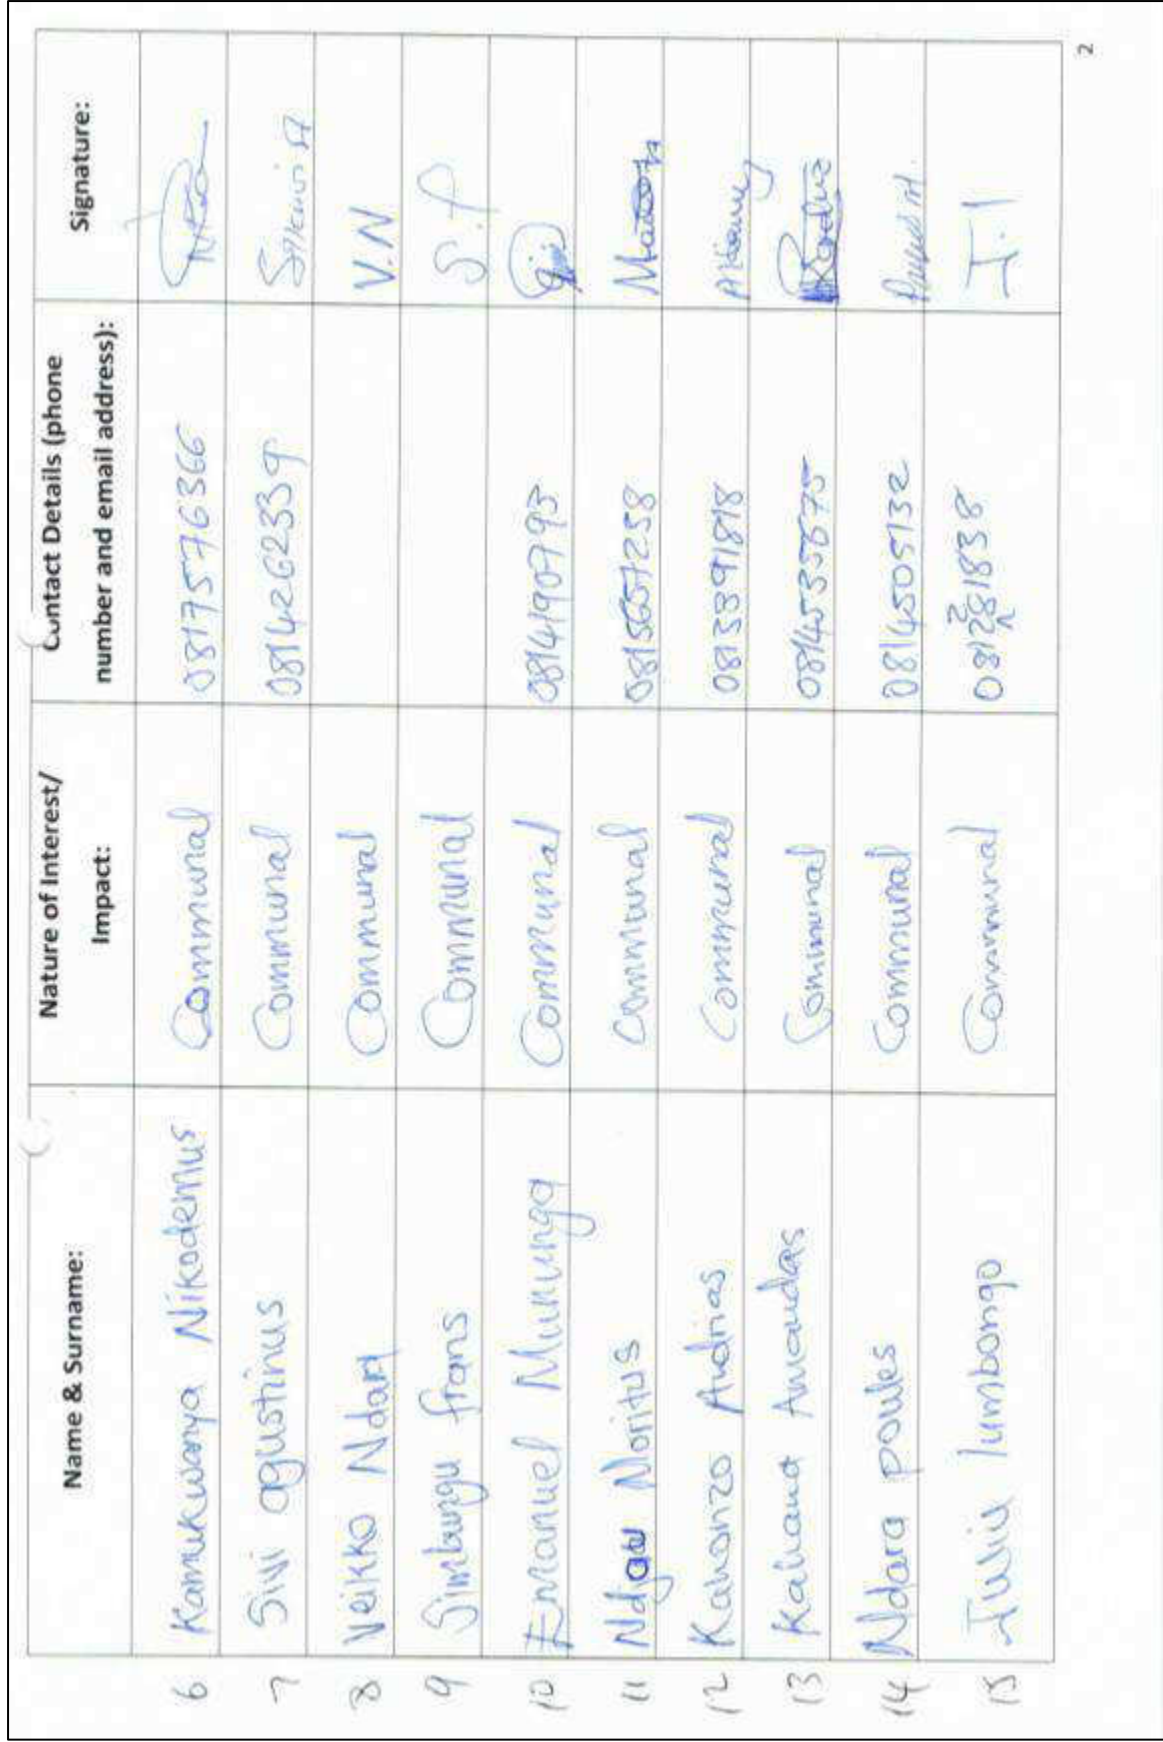 Name & Surname: Nature of Interest/ Impact: Contact Details (phone number and email address): Signature:
6 Kamukwanya Nikodemus Communal 0817576366
7 Sivi agustinus Communal 0814262339
8 Veikko Ndara Communal V.N
9 Simbungu frans Communal S.f
10 Emanuel Mununga Communal 0814190793
11 Moritus Communal 0813657258
12 Kahonzo Andrias Communal 0813391818
13 Communal 0814535575
14 Ndara poules Communal 0814505132
15 Communal J.I
2